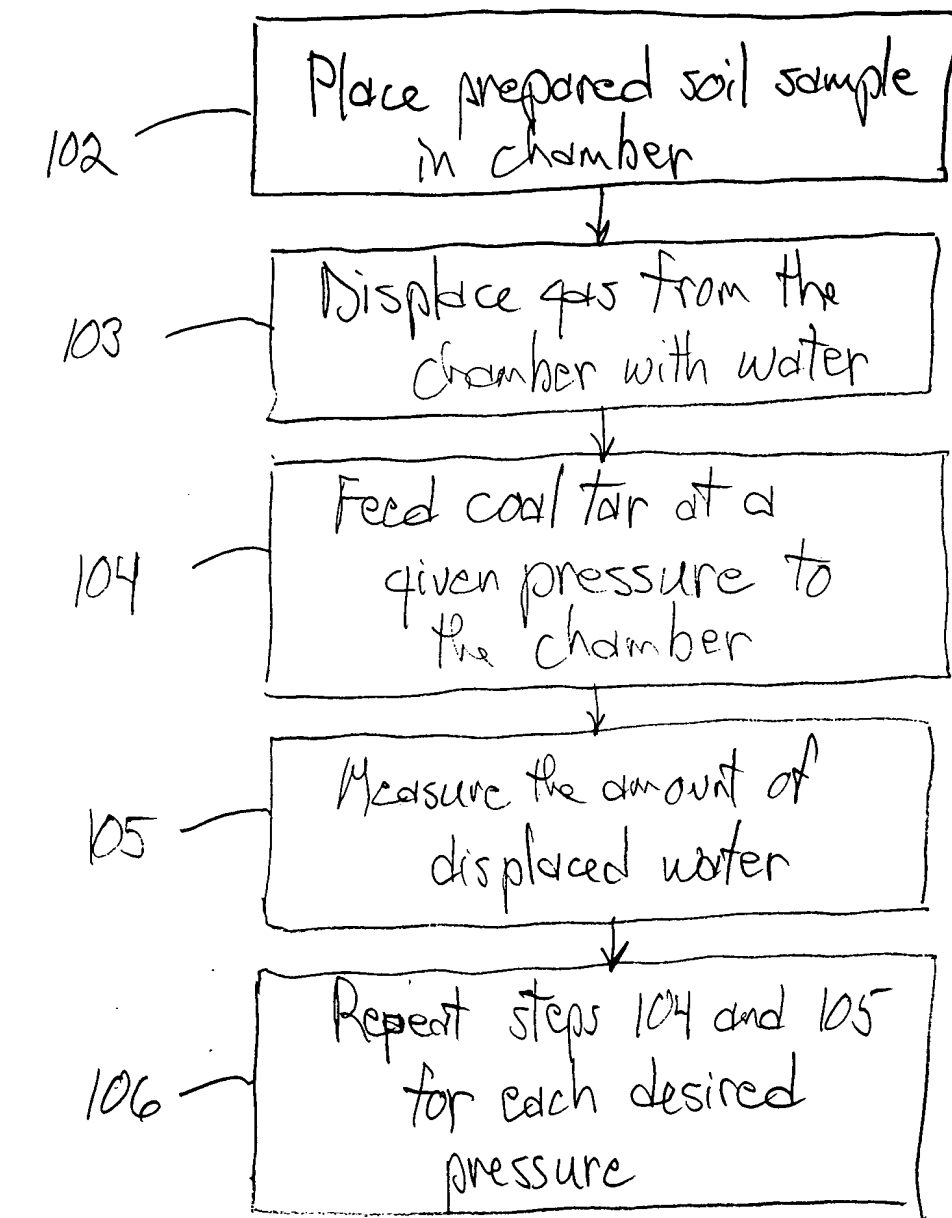 Place prepared soil sample
102
in chamber
Displace gas from the
103
chamber with water
Feed coal tar at a
104
given pressure to
the chamber
Measure the amount of
105
displaced water
Repeat steps 104 and 105
106
for each desired
pressure